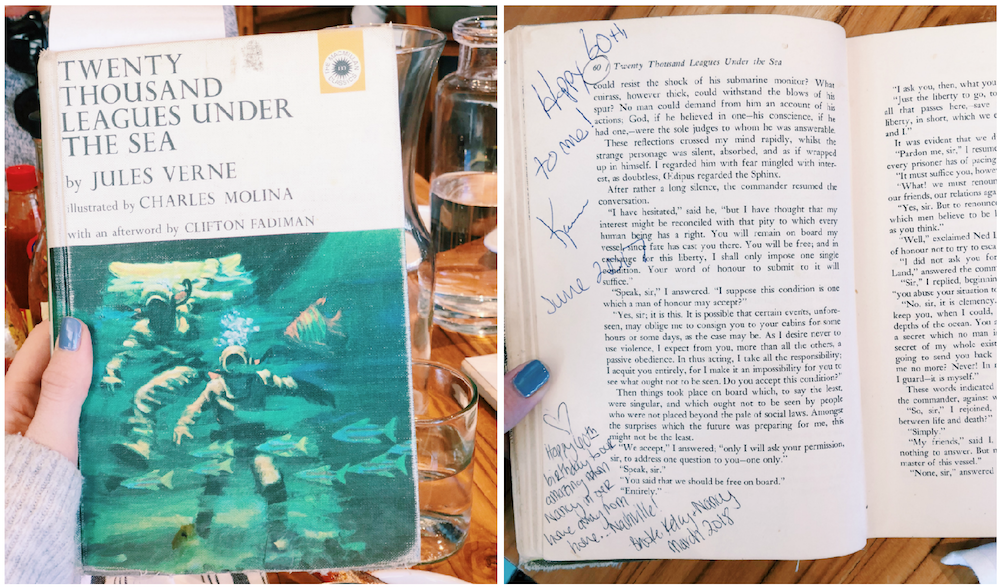 TWENTY
THOUSAND
LEAGUES UNDER
THE SEA
by JULES VERNE
illustrated by CHARLES MOLINA
with an afterword by CLIFTON FADIMAN
Happy 60th
to me!
June
60 / Twenty Thousand Leagues Under the Sea
could resist the shock of his submarine monitor? What
cuirass, however thick, could withstand the blows of his
spur? No man could demand from him an account of his
actions; God, if he believed in one—his conscience, if he
had one,—were the sole judges to whom he was answerable.
These reflections crossed my mind rapidly, whilst the
strange personage was silent, absorbed, and as if wrapped
up in himself. I regarded him with fear mingled with inter-
est, as doubtless, Œdipus regarded the Sphinx.
After rather a long silence, the commander resumed the
conversation.
"I have hesitated," said he, "but I have thought that my
interest might be reconciled with that pity to which every
human being has a right. You will remain on board my
vessel, since fate has cast you there. You will be free; and in
exchange for this liberty, I shall only impose one single
condition. Your word of honour to submit to it will
suffice."
"Speak, sir," I answered. "I suppose this condition is one
which a man of honour may accept?"
"Yes, sir; it is this. It is possible that certain events, unfore-
seen, may oblige me to consign you to your cabins for some
hours or some days, as the case may be. As I desire never to
use violence, I expect from you, more than all the others, a
passive obedience. In thus acting, I take all the responsibility:
I acquit you entirely, for I make it an impossibility for you to
see what ought not to be seen. Do you accept this condition?"
Then things took place on board which, to say the least,
were singular, and which ought not to be seen by people
who were not placed beyond the pale of social laws. Amongst
the surprises which the future was preparing for me, this
might not be the least.
"We accept," I answered; "only I will ask your permission,
sir, to address one question to you—one only."
"Speak, sir."
"You said that we should be free on board."
"Entirely."
Happy 60th
birthday to our
amazing mom
Nancy in our
home away from
home... Nashville!
Kelly + Nancy
March 2018
"I ask you, then, what you
"Just the liberty to go, to
all that passes here, save
liberty, in short, which we e
and I."
It was evident that we d
"Pardon me, sir," I resume
every prisoner has of pacing
"It must suffice you, howe
"What! we must renoun
our friends, our relations aga
"Yes, sir. But to renounc
which men believe to be l
as you think."
"Well," exclaimed Ned L
of honour not to try to esca
"I did not ask you for
Land," answered the comm
"Sir," I replied, beginnin
"you abuse your situation to
"No, sir, it is clemency.
keep you, when I could,
depths of the ocean. You a
a secret which no man i
secret of my whole exist
going to send you back
me no more? Never! In r
I guard—it is myself."
These words indicated
the commander, against w
"So, sir," I rejoined,
between life and death?"
"Simply."
"My friends," said I,
nothing to answer. But n
master of this vessel."
"None, sir," answered